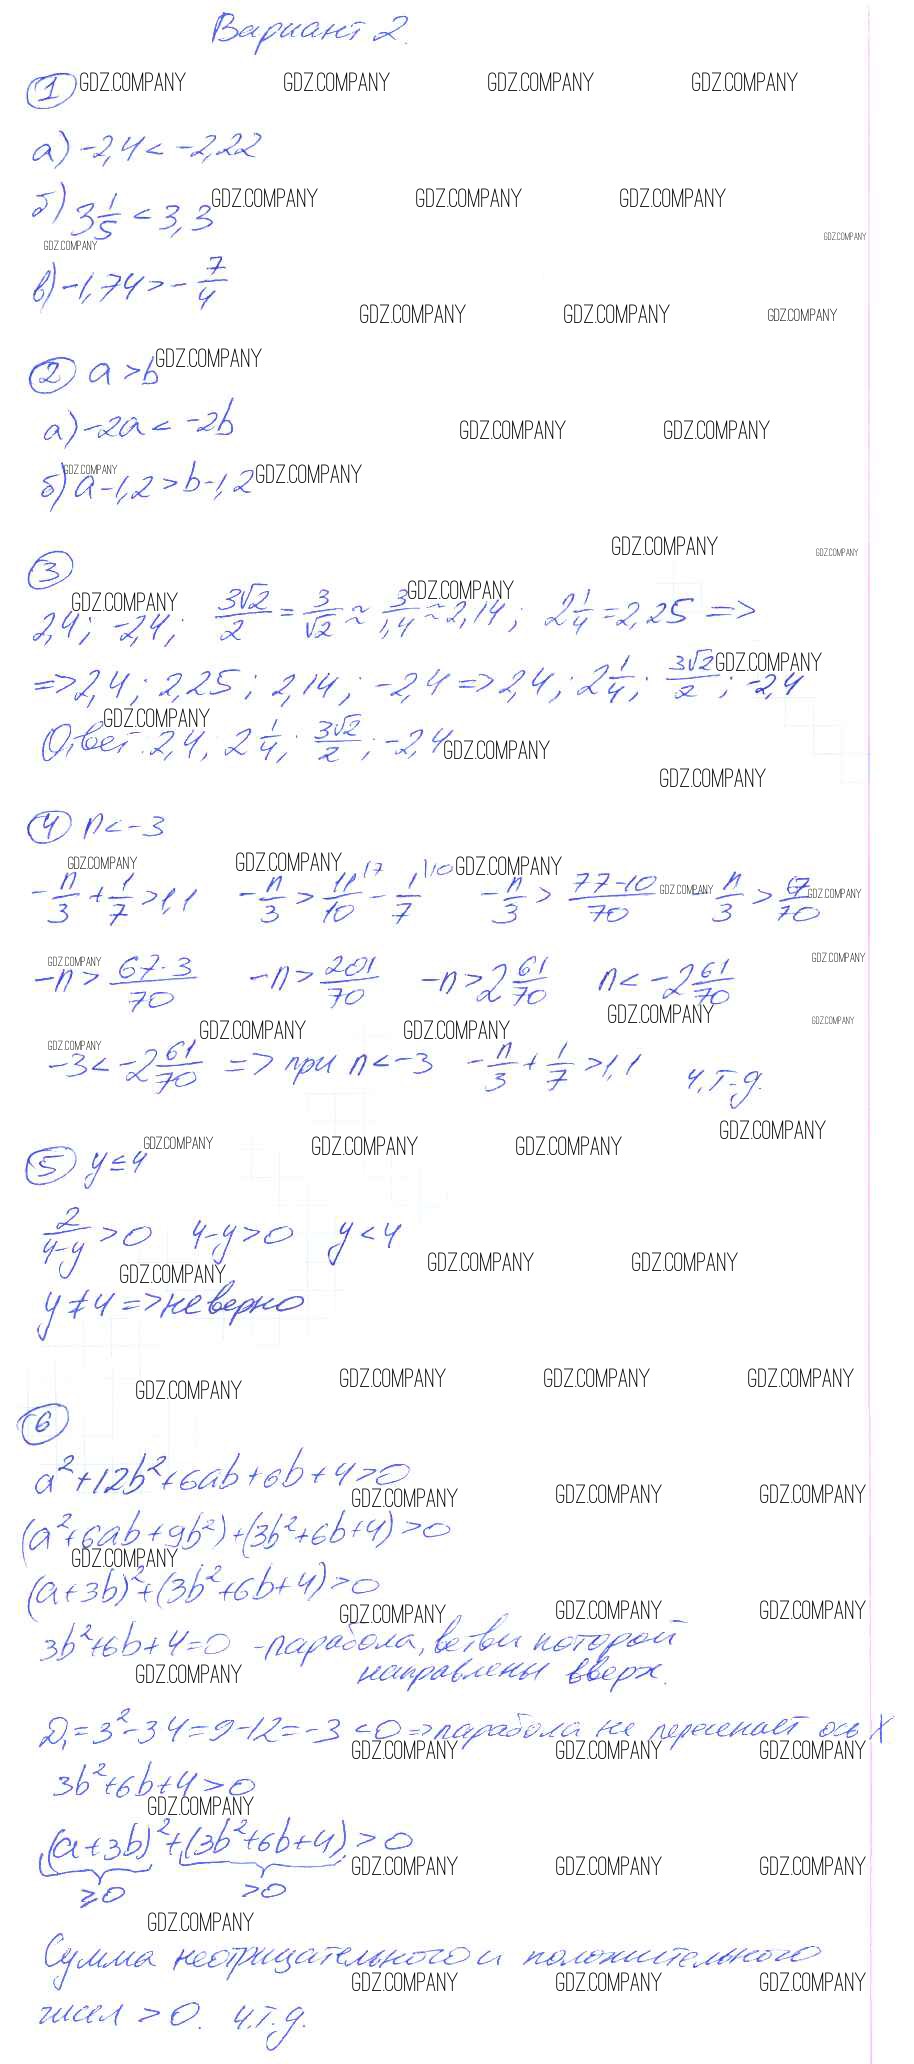 Вариант 2.
1 GDZ.COMPANY GDZ.COMPANY GDZ.COMPANY GDZ.COMPANY
а) -2,4 < -2,22
б) 3 1/5 < 3,3 GDZ.COMPANY GDZ.COMPANY GDZ.COMPANY
GDZ.COMPANY GDZ.COMPANY
в) -1,74 > - 7/4
GDZ.COMPANY GDZ.COMPANY GDZ.COMPANY
2 a > b GDZ.COMPANY
а) -2a < -2b GDZ.COMPANY GDZ.COMPANY
GDZ.COMPANY GDZ.COMPANY
б) a-1,2 > b-1,2
GDZ.COMPANY GDZ.COMPANY
3
GDZ.COMPANY GDZ.COMPANY
2,4; -2,4; 3√2/2 = 3/√2 ≈ 3/1,4 ≈ 2,14; 2 1/4 = 2,25 =>
=> 2,4; 2,25; 2,14; -2,4 => 2,4; 2 1/4; 3√2/2; -2,4 GDZ.COMPANY
GDZ.COMPANY
Ответ: 2,4; 2 1/4; 3√2/2; -2,4 GDZ.COMPANY
GDZ.COMPANY
4 n < -3
GDZ.COMPANY GDZ.COMPANY GDZ.COMPANY
-n/3 + 1/7 > 1,1 -n/3 > 11/10 \7 - 1/7 \10 -n/3 > 77-10/70 GDZ.COMPANY -n/3 > 67/70 GDZ.COMPANY
GDZ.COMPANY GDZ.COMPANY
-n > 67·3/70 -n > 201/70 -n > 2 61/70 n < -2 61/70
GDZ.COMPANY GDZ.COMPANY GDZ.COMPANY GDZ.COMPANY
GDZ.COMPANY
-3 < -2 61/70 => при n < -3 -n/3 + 1/7 > 1,1 ч.т.д.
GDZ.COMPANY GDZ.COMPANY GDZ.COMPANY GDZ.COMPANY
5 y ≤ 4
2/4-y > 0 4-y > 0 y < 4
GDZ.COMPANY GDZ.COMPANY GDZ.COMPANY
y ≠ 4 => неверно
GDZ.COMPANY GDZ.COMPANY GDZ.COMPANY GDZ.COMPANY
6
a²+12b²+6ab+6b+4 > 0
GDZ.COMPANY GDZ.COMPANY GDZ.COMPANY
(a²+6ab+9b²)+(3b²+6b+4) > 0
GDZ.COMPANY
(a+3b)²+(3b²+6b+4) > 0
GDZ.COMPANY GDZ.COMPANY GDZ.COMPANY
3b²+6b+4=0 - парабола, ветви которой
GDZ.COMPANY направлены вверх.
D₁ = 3²-34 = 9-12 = -3 < 0 => парабола не пересекает ось X
GDZ.COMPANY GDZ.COMPANY GDZ.COMPANY
3b²+6b+4 > 0
GDZ.COMPANY
(a+3b)²+(3b²+6b+4) > 0
GDZ.COMPANY GDZ.COMPANY GDZ.COMPANY
≥0 >0
GDZ.COMPANY
Сумма неотрицательного и положительного
GDZ.COMPANY GDZ.COMPANY GDZ.COMPANY
чисел > 0. ч.т.д.